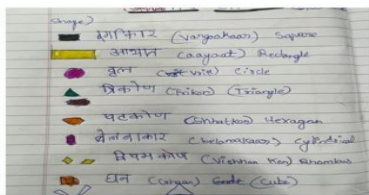 shape)
वर्गाकार (Vargaakaar) Square
आयात (aayaat) Rectangle
वृत (vrit) Circle
त्रिकोण (Trikon) (Triangle)
षटकोण (Shhatkon) Hexagon
बेलनाकार (belanakaar) Cylindrical
विषमकोण (Visham Kon) Rhombus
घन (Ghan) (Cube)